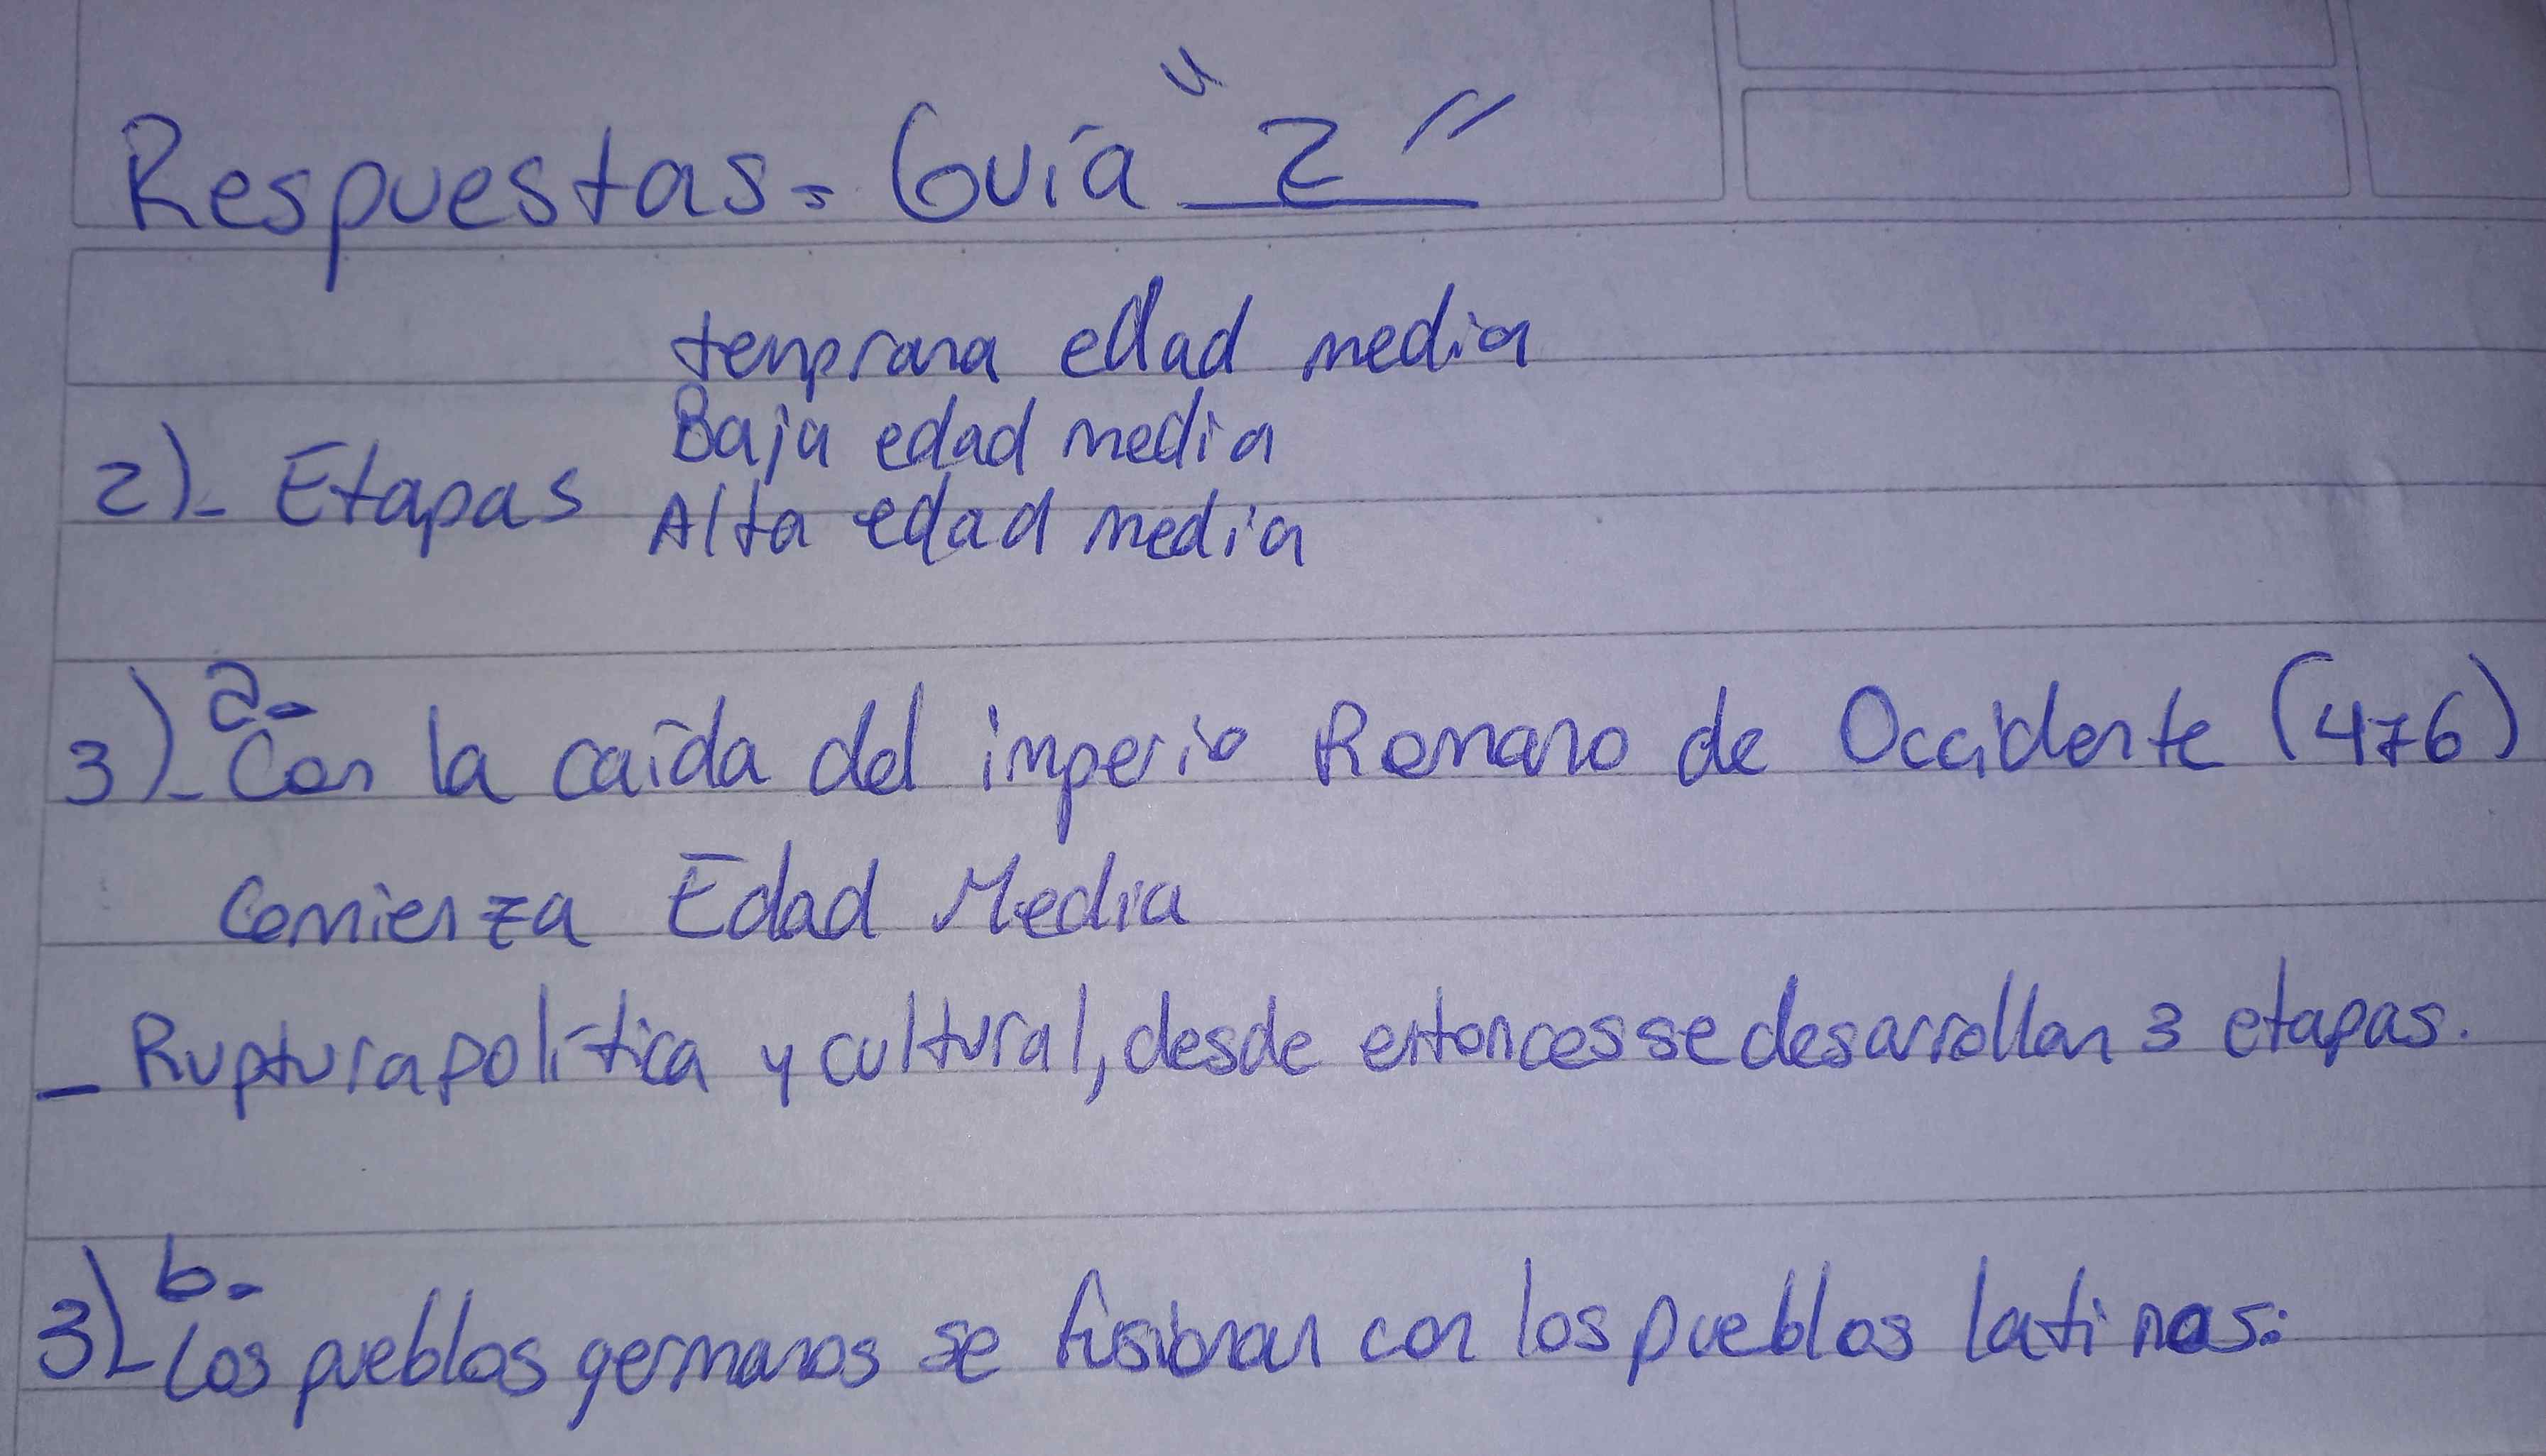 Respuestas = Guía " 2 "
temprana edad media
Baja edad media
2)- Etapas
Alta edad media
a-
3)- Con la caída del imperio Romano de Occidente (476)
Comienza Edad Media
- Ruptura política y cultural, desde entonces se desarrollan 3 etapas.
b-
3)- Los pueblos germanos se fusionan con los pueblos latinos.